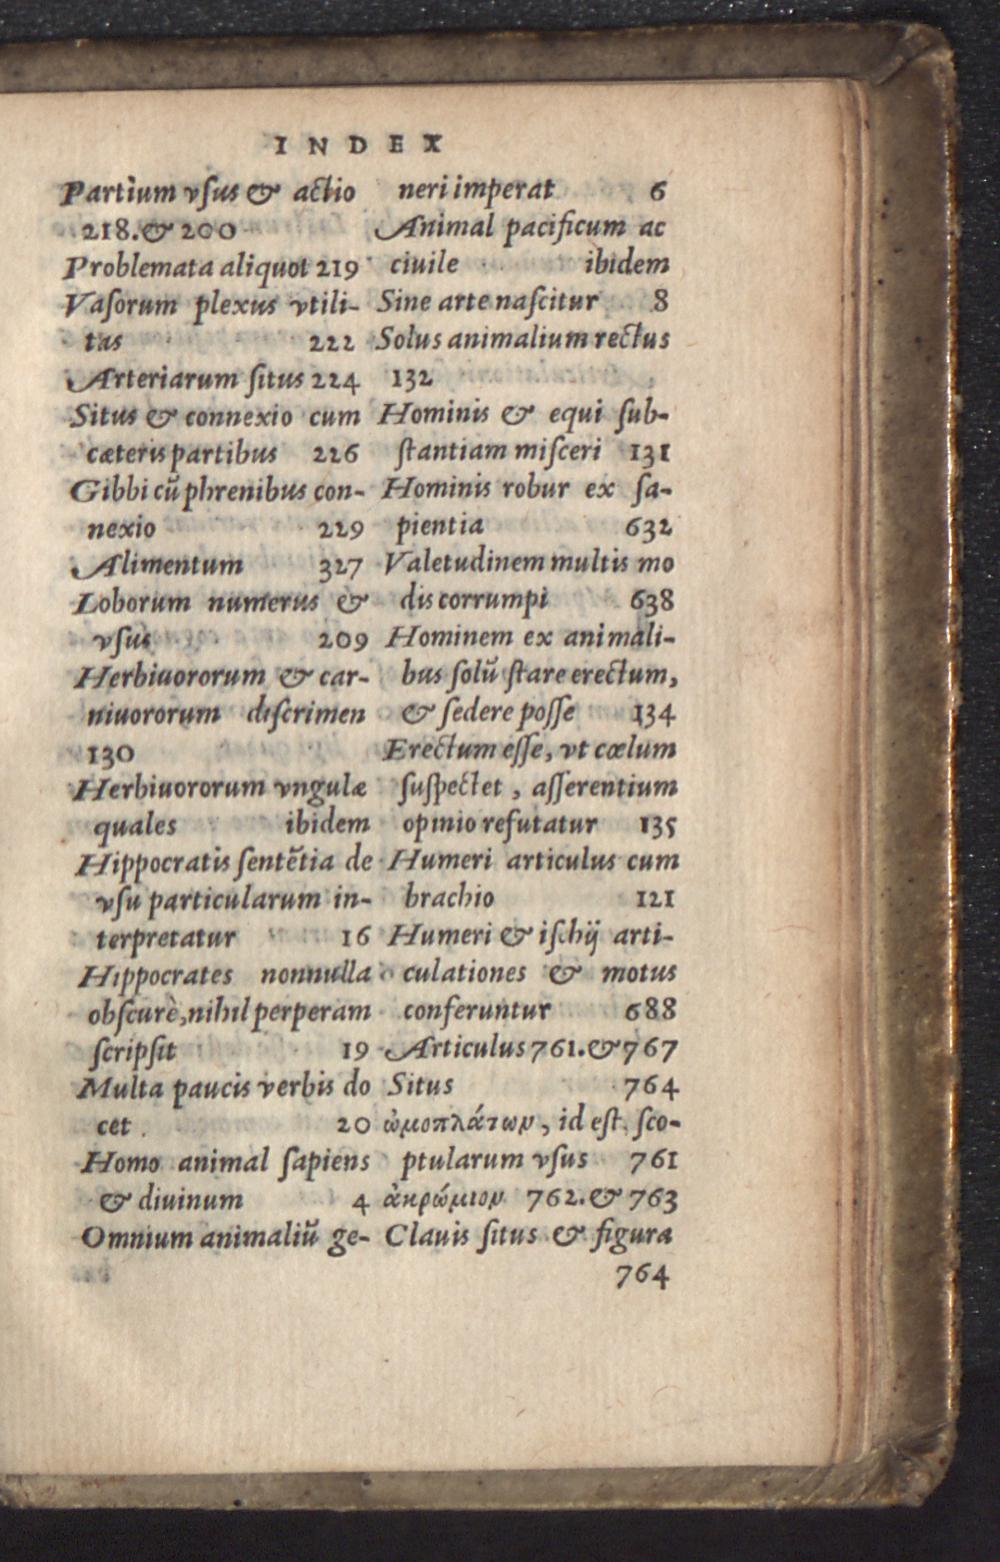 INDEX
Partium vſus & actio
218.& 200
Problemata aliquot 219
Vaſorum plexus vtili-
tas 222
Arteriarum ſitus 224
Situs & connexio cum
cæteris partibus 226
Gibbi cũ phrenibus con-
nexio 229
Alimentum 327
Loborum numerus &
vſus 209
Herbiuororum & car-
niuororum diſcrimen
130
Herbiuororum vngulæ
quales ibidem
Hippocratis ſentẽtia de
vſu particularum in-
terpretatur 16
Hippocrates nonnulla
obſcurè, nihil perperam
ſcripſit 19
Multa paucis verbis do
cet 20
Homo animal ſapiens
& diuinum 4
Omnium animaliũ ge-
neri imperat 6
Animal pacificum ac
ciuile ibidem
Sine arte naſcitur 8
Solus animalium rectus
132
Hominis & equi ſub-
ſtantiam miſceri 131
Hominis robur ex ſa-
pientia 632
Valetudinem multis mo
dis corrumpi 638
Hominem ex animali-
bus ſolũ ſtare erectum,
& ſedere poſſe 134
Erectum eſſe, vt cœlum
ſuſpectet, aſſerentium
opinio refutatur 135
Humeri articulus cum
brachio 121
Humeri & iſchij arti-
culationes & motus
conferuntur 688
Articulus 761.& 767
Situs 764
ὠμοπλάτων, id eſt, ſco-
ptularum vſus 761
ἀκρώμιον 762.& 763
Clauis ſitus & figura
764